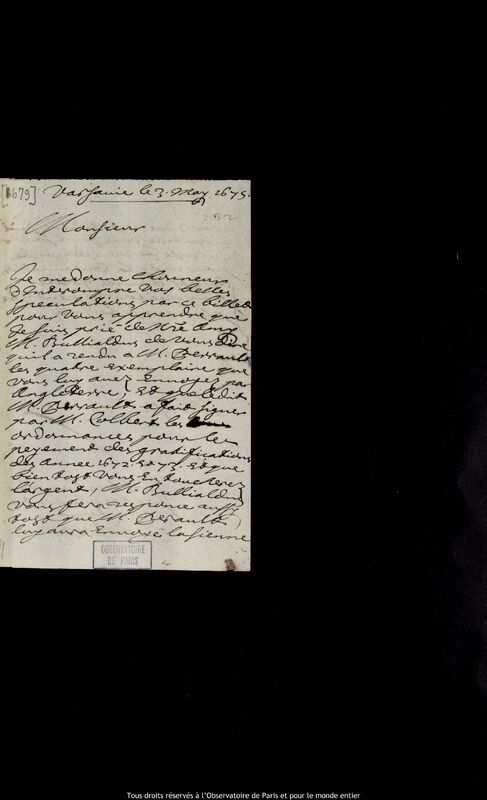 [1679]
Varsauie le 3. May 1675.
292
Monsieur
Je me donne l'honneur
d'Interrompre Vos belles
speculations par ce billet
pour Vous apprendre que
Je suis prié de Nre Amy
M. Bullialdus de Vous dire
quil a rendu a M. Perrault
les quatre Exemplaire que
Vous luy auez Enuoyez par
Angleterre, Et que ledit
M. Perrault a fait signer
par M. Colbert les
ordonnances pour le
payement des gratifications
des Année 1672. Et 73. Et que
bien tost Vous En toucherez
l'argent, M. Bullialdus
Vous fera responce aussi
tost que M. Perault
luy aura Enuoyé la sienne
OBSERVATOIRE
DE PARIS
Tous droits réservés à l'Observatoire de Paris et pour le monde entier